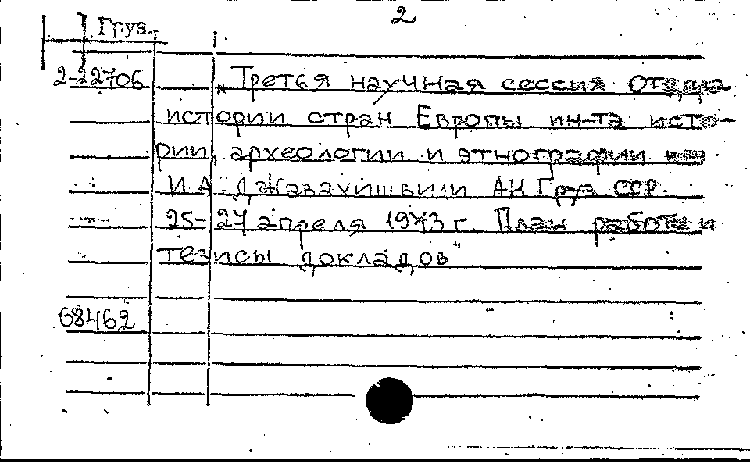 2
Груз.
2-22706 „Третья научная сессия Отдела
истории стран Европы ин-та исто-
рии, археологии и этнографии им.
И.А. Джавахишвили АН Груз. ССР.
25-27 апреля 1973 г. План работы и
тезисы докладов"
68462